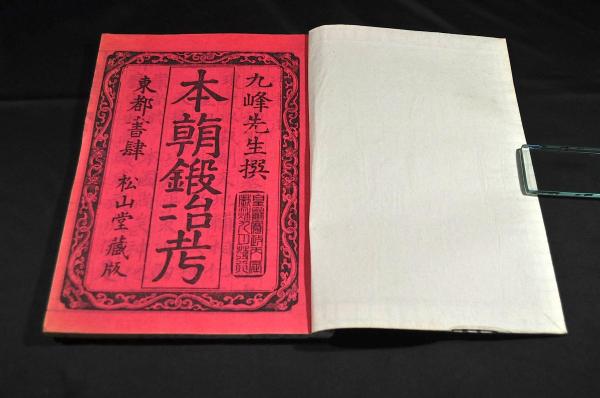 九峰先生撰
本朝鍛冶考
東都書肆 松山堂藏版